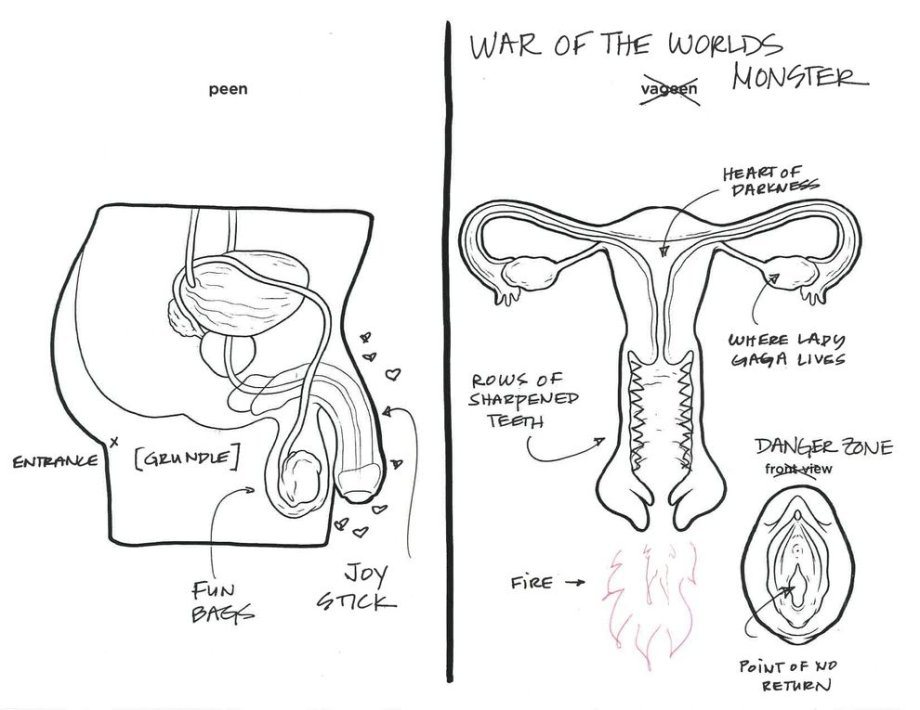 peen
ENTRANCE
X
[GRUNDLE]
FUN
BAGS
JOY
STICK
WAR OF THE WORLDS
MONSTER
vageen
HEART OF
DARKNESS
WHERE LADY
GAGA LIVES
ROWS OF
SHARPENED
TEETH
DANGER ZONE
front view
FIRE
POINT OF NO
RETURN